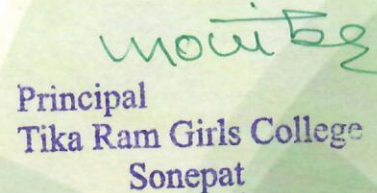 Principal
Tika Ram Girls College
Sonepat